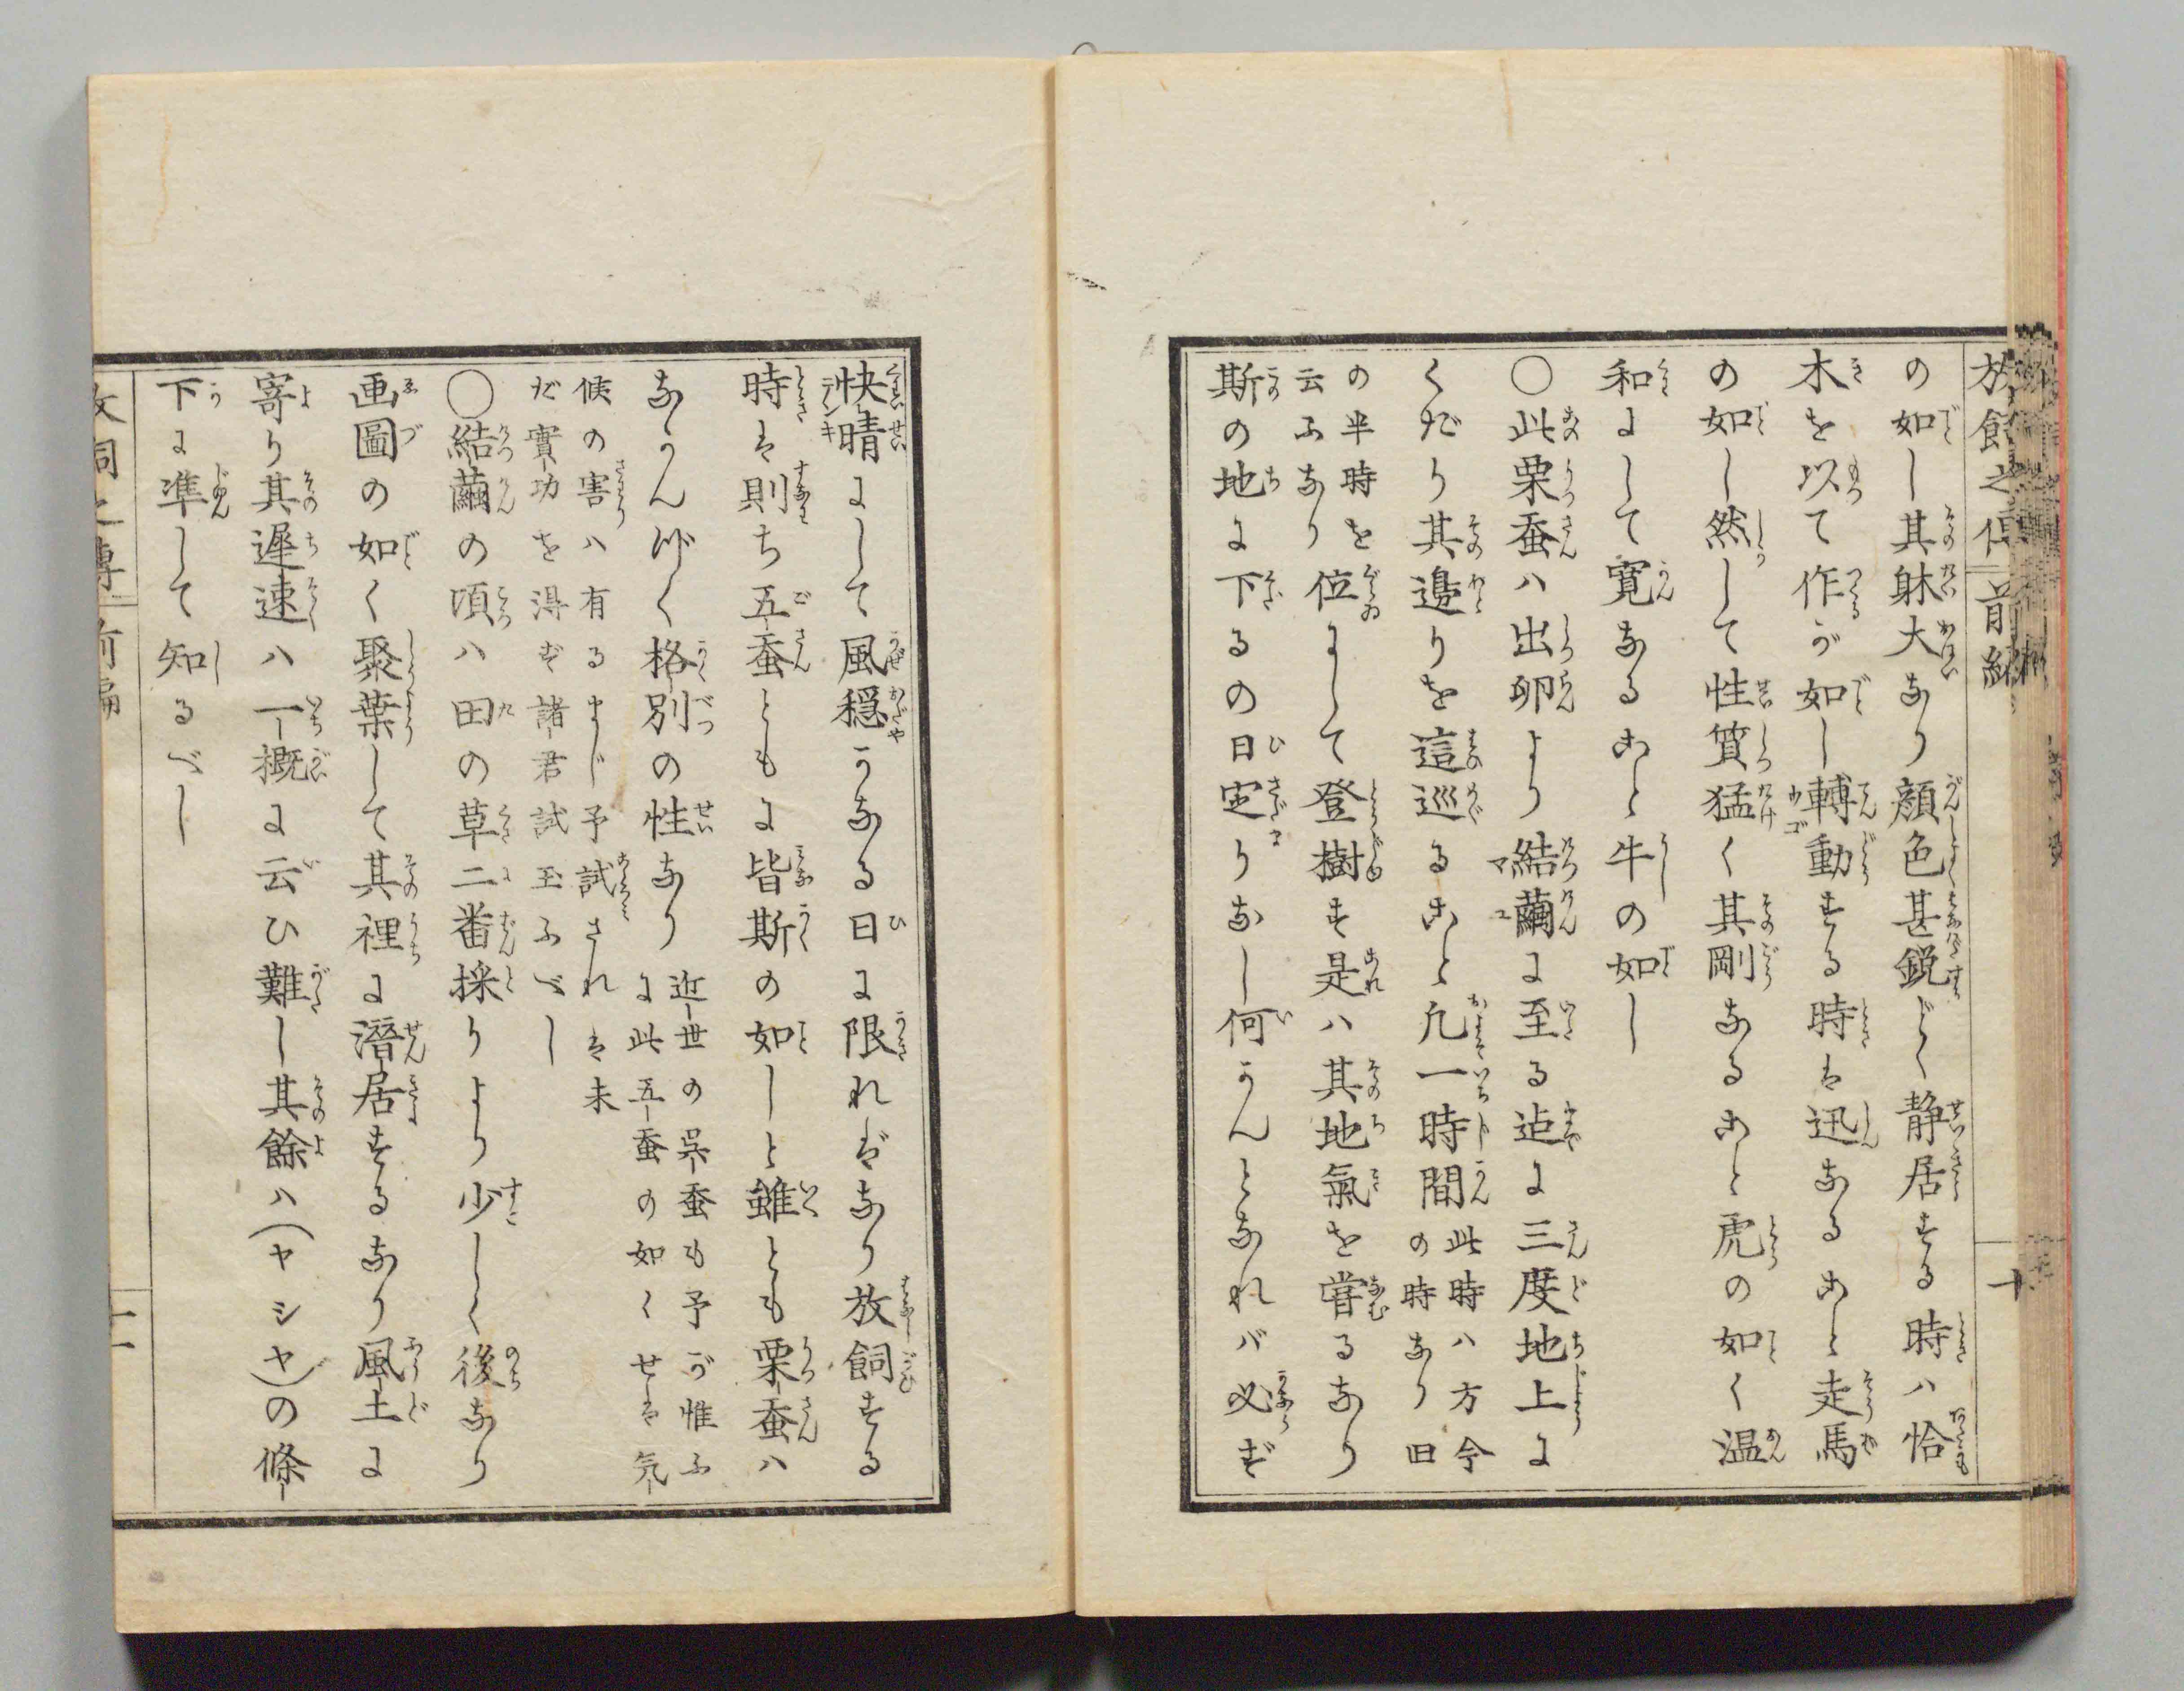 の如し其躰大なり顔色甚鋭どく静居する時ハ恰
木を以て作るが如し轉動する時は迅なること走馬
の如し然して性質猛く其剛なること虎の如く温
和にして寛なること牛の如し
〇此栗蚕ハ出卵より結繭に至る迠に三度地上に
くだり其邉りを這巡ること凡一時間此時時ハ方今
の時なり旧
の半時を
云ふなり位にして登樹す是ハ其地氣を嘗るなり
斯の地に下るの日定りなし何かんとなれバ必ず
快晴にして風穏かなる日に限ればなり放飼する
時は則ち五蚕ともに皆斯の如しと雖とも栗蚕ハ
なかんづく格別の性なり近世の呉蚕も予が惟ふ
に此五蚕の如くせは気
候の害ハ有るまじ予試されは未
だ實功を得ず諸君試玉ふべし
〇結繭の頃ハ田の草二番採りより少しく後なり
画圖の如く聚葉して其裡に潜居するなり風土に
寄り其遲速ハ一概に云ひ難し其餘ハ(ヤシャ)の條
下に準して知るべし